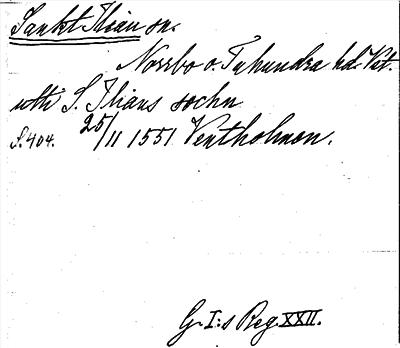 Sankt Ilian sn.
Norrbo o. Tuhundra hd. Vet.
uthi S. Ilians sochn
S. 404. 25/11 1551 Ventholmen.
G. I:s Reg. XXII.